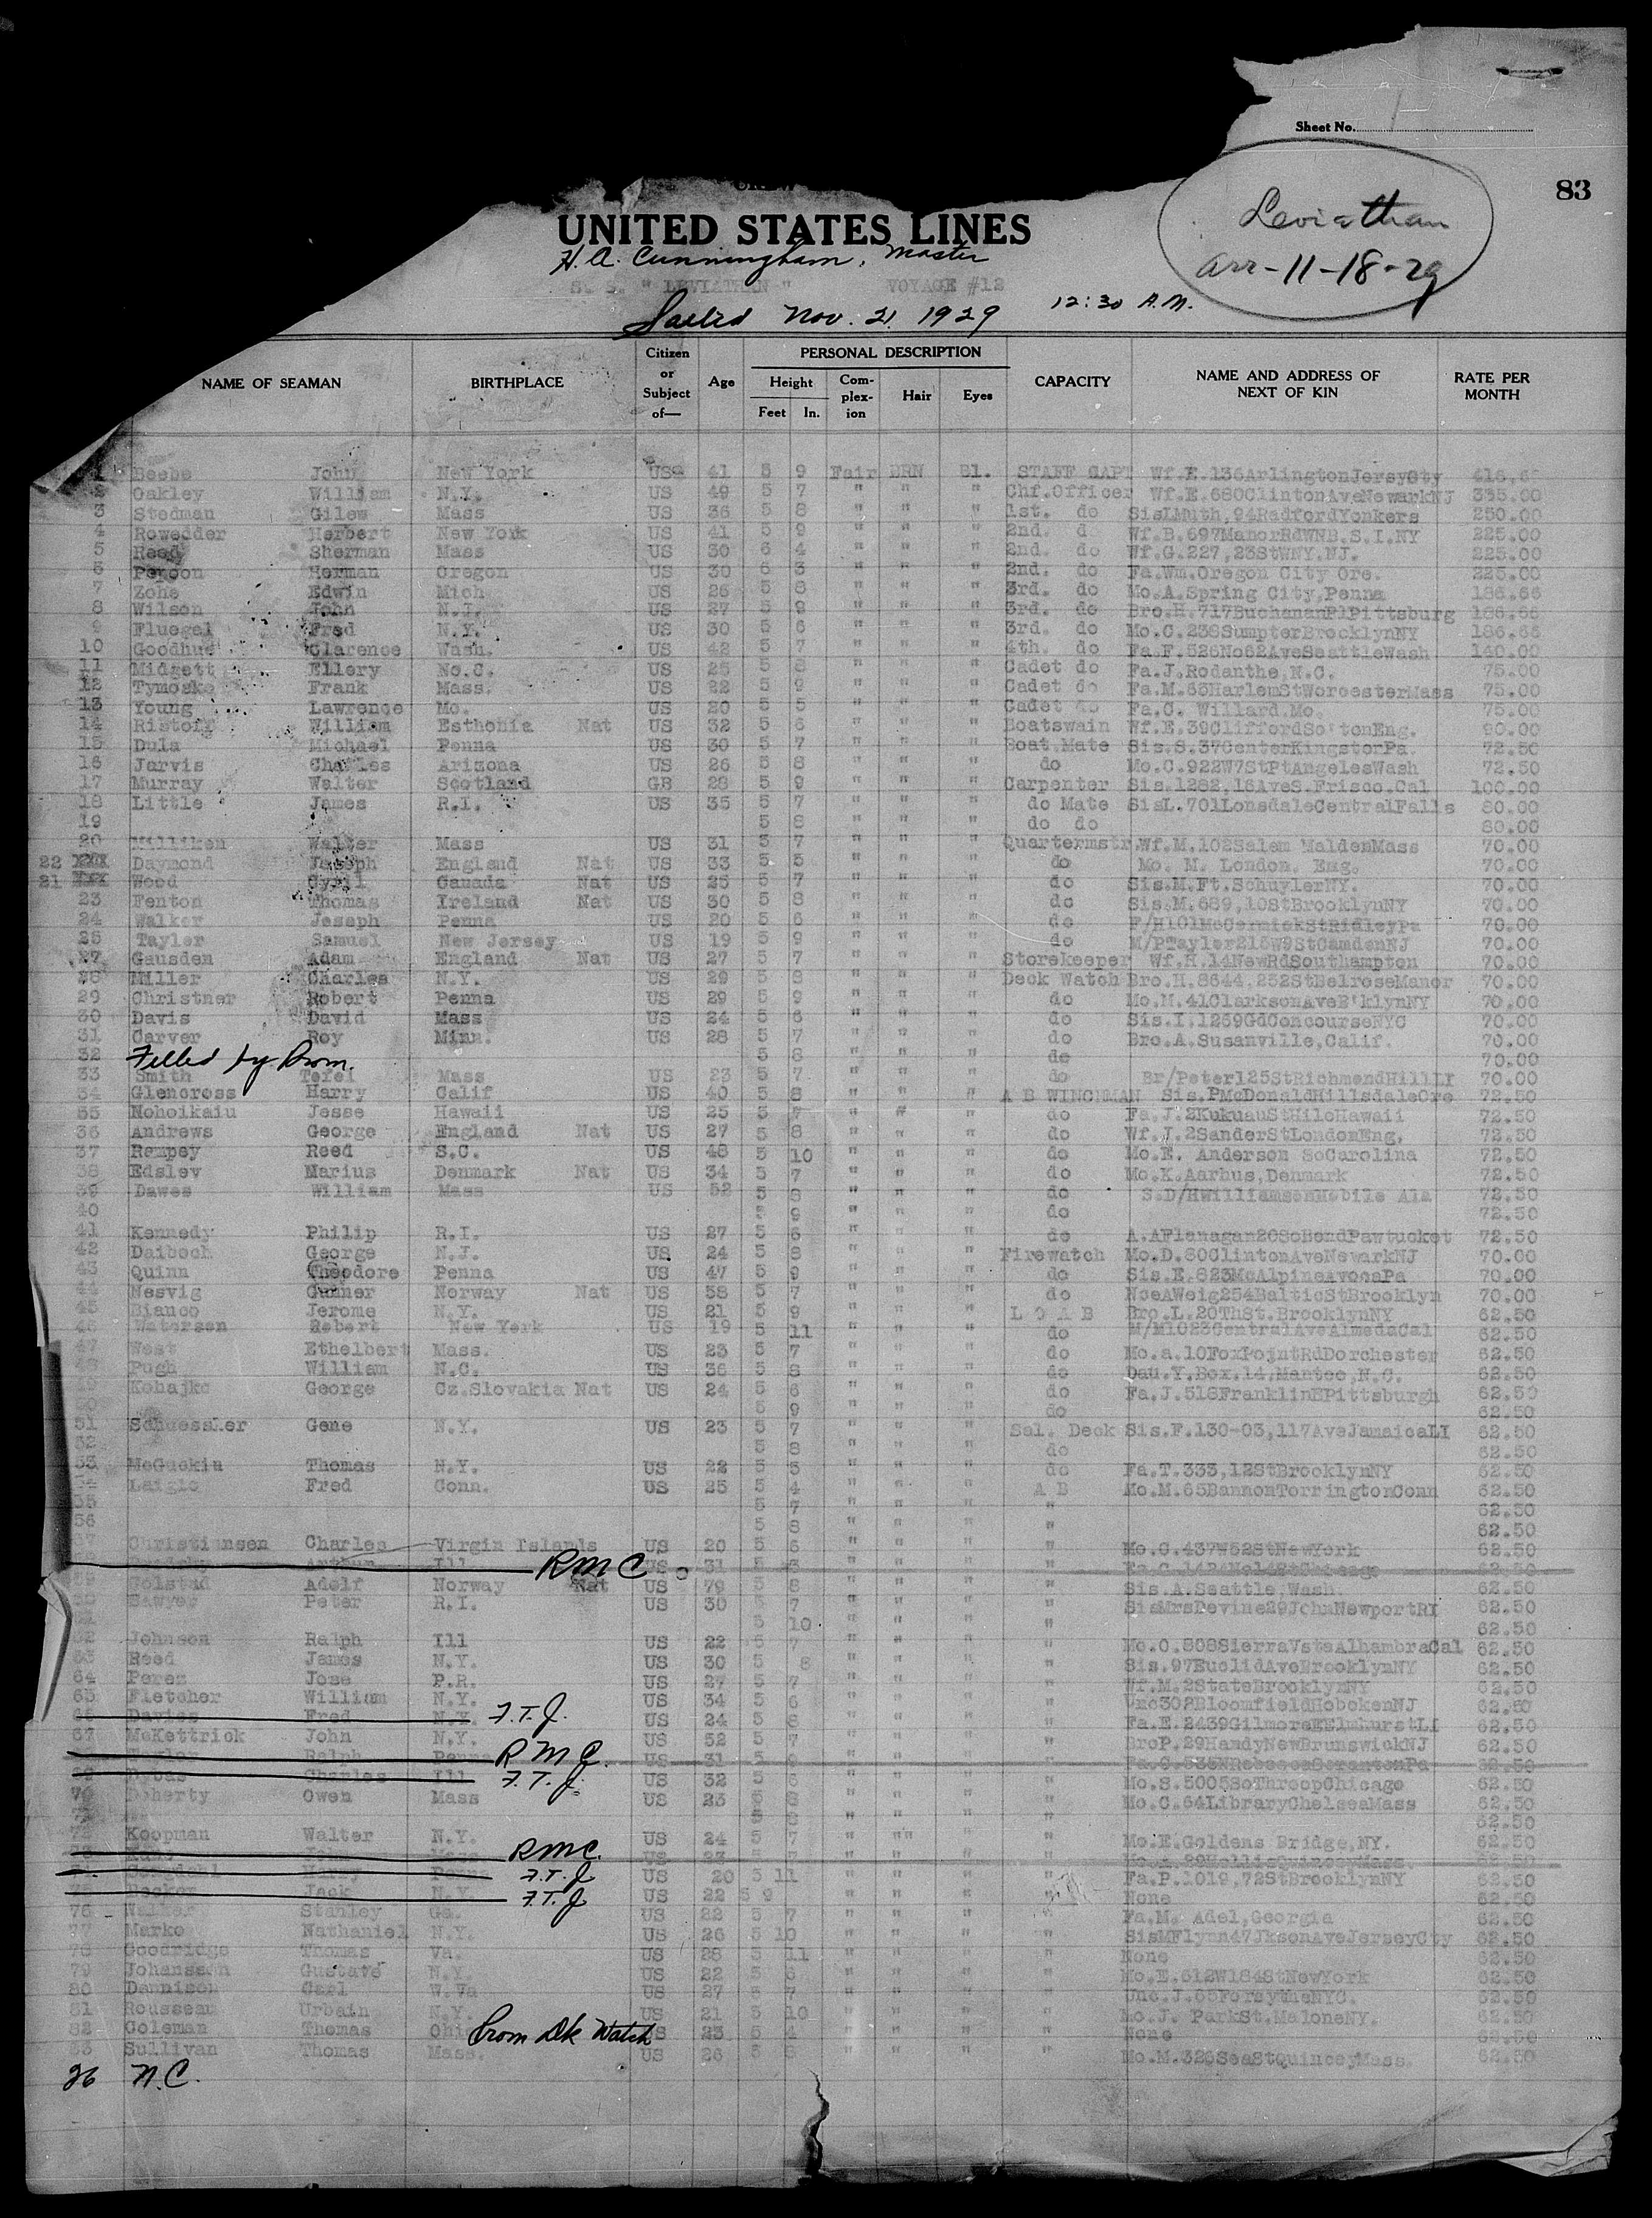 Sheet No.
83
Leviathan
arr-11-18-29
UNITED STATES LINES
H. A. Cunningham, Master
S. S. " LEVIATHAN " VOYAGE #12
Sailed Nov. 21 1929 12:30 A.M.
NAME OF SEAMAN BIRTHPLACE Citizen or Subject of— Age PERSONAL DESCRIPTION Height Feet In. Com-plex-ion Hair Eyes CAPACITY NAME AND ADDRESS OF NEXT OF KIN RATE PER MONTH
1 Beebe John New York US 41 5 9 Fair BRN Bl. STAFF CAPT Wf.E.136ArlingtonJersyCty 416.66
2 Oakley William N.Y. US 49 5 7 " " " Chf.Officer Wf.E.680ClintonAveNewarkNJ 335.00
3 Stedman Gilew Mass US 36 5 8 " " " 1st. do SisLMuth,94RadfordYonkers 250.00
4 Rowedder Herbert New York US 41 5 9 " " " 2nd. d Wf.B.697ManorRdWNB.S.I.NY 225.00
5 Reed Sherman Mass US 30 6 4 " " " 2nd. do Wf.G.227,23StWNY.NJ. 225.00
6 Herman Oregon US 30 6 3 " " " 2nd. do Fa.Wm.Oregon City Ore. 225.00
7 Zohe Edwin Mich US 26 5 8 " " " 3rd. do Mo.A.Spring City,Penna 186.66
8 Wilson John N.J. US 27 5 9 " " " 3rd. do Bro.H.717BuchananPlPittsburg 186.66
9 Fluegel Fred N.Y. US 30 5 6 " " " 3rd. do Mo.C.238SumpterBrooklynNY 186.66
10 Goodhue Clarence Wash. US 42 5 7 " " " 4th. do Fa.F.526No62AveSeattleWash 140.00
11 Midgett Ellery No.C. US 25 5 8 " " " Cadet do Fa.J.Rodanthe,N.C. 75.00
12 Tymosko Frank Mass. US 22 5 9 " " " Cadet do Fa.M.63HarlemStWorcesterMass 75.00
13 Young Lawrence Mo. US 20 5 5 " " " Cadet do Fa.C. Willard.Mo. 75.00
14 Ristoff William Esthonia Nat US 32 5 6 " " " Boatswain Wf.E.39CliffordSo'tonEng. 90.00
15 Dula Michael Penna US 30 5 7 " " " Boat.Mate Sis.S.37CenterKingstorPa. 72.50
16 Jarvis Charles Arizona US 26 5 8 " " " do Mo.C.922W7StPtAngelesWash 72.50
17 Murray Walter Scotland GB 28 5 9 " " " Carpenter Sis.1282,18AveS.Frisco.Cal 100.00
18 Little James R.I. US 35 5 7 " " " do Mate SisL.701LonsdaleCentralFalls 80.00
19 5 8 " " " do do 80.00
20 Milliken Walter Mass US 31 5 7 " " " Quartermstr.Wf.M.102Salem MaldenMass 70.00
22 XXX Daymond Joseph England Nat US 33 5 5 " " " do Mo. M. London. Eng. 70.00
21 XXX Wood Cyril Canada Nat US 25 5 7 " " " do Sis.M.Ft.SchuylerNY. 70.00
23 Fenton Thomas Ireland Nat US 30 5 8 " " " do Sis.M.689,10StBrooklynNY 70.00
24 Walker Joseph Penna US 20 5 6 " " " do F/H101McCormickStRidleyPa 70.00
25 Tayler Samuel New Jersey US 19 5 9 " " " do M/PTayler215W9StCamdenNJ 70.00
27 Gausden Adam England Nat US 27 5 7 " " " Storekeeper Wf.H.14NewRdSouthampton 70.00
28 Miller Charles N.Y. US 29 5 8 " " " Deck Watch Bro.H.8644,252StBelroseManor 70.00
29 Christner Robert Penna US 29 5 9 " " " do Mo.M.41ClarksonAveB'klynNY 70.00
30 Davis David Mass US 24 5 6 " " " do Sis.I.1259GdConcourseNYC 70.00
31 Carver Roy Minn. US 28 5 7 " " " do Bro.A.Susanville,Calif. 70.00
32 Filled by Prom. 5 8 " " " do 70.00
33 Smith Tefel Mass US 23 5 7 " " " do Br/Peter125StRichmondHillLI 70.00
34 Glencross Harry Calif US 40 5 8 " " " A B WINCHMAN Sis.PMcDonaldHillsdaleOre 72.50
35 Nohoikaiu Jesse Hawaii US 25 5 7 " " " do Fa.J.2KukuauStHiloHawaii 72.50
36 Andrews George England Nat US 27 5 8 " " " do Wf.I.2SanderStLondonEng. 72.50
37 Rempey Reed S.C. US 48 5 10 " " " do Mo.E. Anderson SoCarolina 72.50
38 Edslev Marius Denmark Nat US 34 5 7 " " " do Mo.K.Aarhus,Denmark 72.50
39 Dawes William Mass US 52 5 8 " " " do S.D/HWilliamsonMobile Ala 72.50
40 5 9 " " " do 72.50
41 Kennedy Philip R.I. US 27 5 6 " " " do A.AFlanagan20SoBendPawtucket 72.50
42 Daiboch George N.J. US 24 5 8 " " " Firewatch Mo.D.80ClintonAveNewarkNJ 70.00
43 Quinn Theodore Penna US 47 5 9 " " " do Sis.E.823McAlpineAvocaPa 70.00
44 Nesvig Gunner Norway Nat US 58 5 7 " " " do NceAWeig254BalticStBrooklyn 70.00
45 Bianco Jerome N.Y. US 21 5 9 " " " L O A B Bro.L.20ThSt.BrooklynNY 62.50
46 Watersen Robert New York US 19 5 11 " " " do M/M1023CentralAveAlmedaCal 62.50
47 West Ethelbert Mass. US 23 5 7 " " " do Mo.a.10FoxPointRdDorchester 62.50
48 Pugh William N.C. US 36 5 8 " " " do Dau.Y.Box.14.Manteo,N.C. 62.50
49 Kohajko George Cz.Slovakia Nat US 24 5 6 " " " do Fa.J.518FranklinEPittsburgh 62.50
50 5 9 " " " do 62.50
51 Schuessler Gene N.Y. US 23 5 7 " " " Sal. Deck Sis.F.130-03,117AveJamaicaLI 62.50
52 5 8 " " " do 62.50
53 McGuckin Thomas N.Y. US 22 5 5 " " " do Fa.T.333,12StBrooklynNY 62.50
Laiglo Fred Conn. US 25 5 4 " " " A B Mo.M.65BannonTorringtonConn 62.50
55 5 7 " " " " 62.50
56 5 8 " " " " 62.50
57 Christiansen Charles Virgin Islands US 20 5 6 " " " " Mo.C.437W52StNewYork 62.50
Arthur Ill RMC US 31 5 " " " 62.50
Golstad Adolf Norway Nat US 5 8 " " " " Sis.A.Seattle,Wash. 62.50
Sawyer Peter R.I. US 30 5 7 " " " " SisMrsDevine29JohnNewportRI 62.50
5 10 " " " " 62.50
62 Johnson Ralph Ill US 22 5 7 " " " " Mo.C.808SierraVstaAlhambraCal 62.50
63 Reed James N.Y. US 30 5 8 " " " " Sis.97EuclidAveBrooklynNY 62.50
64 Perez Jose P.R. US 27 5 7 " " " " Wf.M.2StateBrooklynNY 62.50
65 Fletcher William N.Y. US 34 5 6 " " " " Unc302BloomfieldHobokenNJ 62.50
66 Davies Fred N.Y. F.T.J. US 24 5 8 " " " " Fa.E.2439GilmoreEElmhurstLI 62.50
67 McKettrick John N.Y. US 52 5 7 " " " " BroP.29HandyNewBrunswickNJ 62.50
Taylor Ralph Penna RMC. US 31 5 " " " " 62.50
69 Rybas Charles Ill F.T.J. US 32 5 6 " " " " Mo.S.5005SoThroopChicago 62.50
70 Doherty Owen Mass US 23 5 8 " " " " Mo.C.64LibraryChelseaMass 62.50
5 8 " " " " 62.50
72 Koopman Walter N.Y. US 24 5 7 " " " " Mo.E.Goldens Bridge,NY. 62.50
RMC. US 23 5 " " " 62.50
Harry Penna F.T.J US 20 5 11 " " " " Fa.P.1019,72StBrooklynNY 62.50
75 Becker Jack N.Y. F.T.J US 22 5 9 " " " " None 62.50
76 Walker Stanley Ga. US 22 5 7 " " " " Fa.M. Adel,Georgia 62.50
77 Marko Nathaniel N.Y. US 26 5 10 " " " " SisMFlynn47JksonAveJerseyCty 62.50
78 Goodridge Thomas Va. US 28 5 11 " " " " None 62.50
79 Johanssen Gustave N.Y. US 22 5 6 " " " " Mo.E.612W184StNewYork 62.50
80 Dennison Carl W.Va US 27 5 7 " " " " Unc.J.65ForsytheNYC. 62.50
81 Rousseau Urbain N.Y. US 21 5 10 " " " " Mo.J. ParkSt.MaloneNY. 62.50
82 Coleman Thomas Ohi from Dk Watch US 23 5 4 " " " " None 62.50
83 Sullivan Thomas Mass. US 26 5 8 " " " " Mo.M.326SeaStQuinceyMass. 62.50
26 N.C.